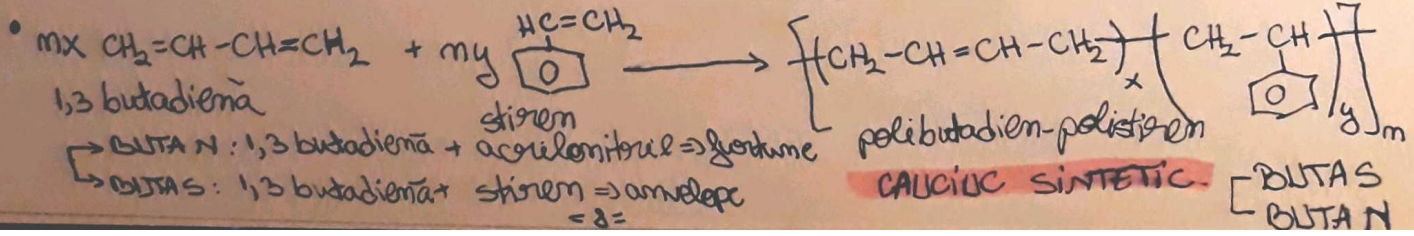 • mx CH₂=CH-CH=CH₂ + my HC=CH₂ ⟶ [(CH₂-CH=CH-CH₂)x (CH₂-CH)y]m
1,3 butadienă
stiren
polibutadien-polistiren
→ BUTAN: 1,3 butadienă + acrilonitril ⇒ furtune
→ BUTAS: 1,3 butadienă + stiren ⇒ anvelope
CAUCIUC SINTETIC
BUTAS
BUTAN
=8=